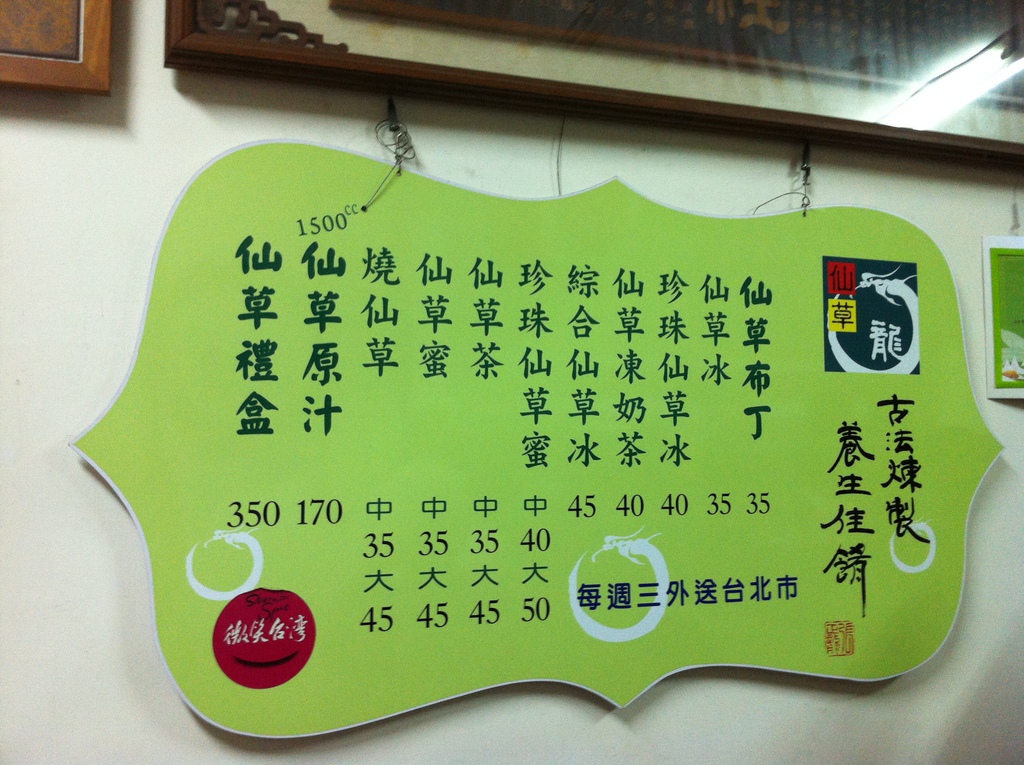 仙草
龍
古法煉製
養生佳餚
仙草布丁 35
仙草冰 35
珍珠仙草冰 40
仙草凍奶茶 40
綜合仙草冰 45
珍珠仙草蜜 中 40 大 50
仙草茶 中 35 大 45
仙草蜜 中 35 大 45
燒仙草 中 35 大 45
1500cc
仙草原汁 170
仙草禮盒 350
每週三外送台北市
微笑台灣